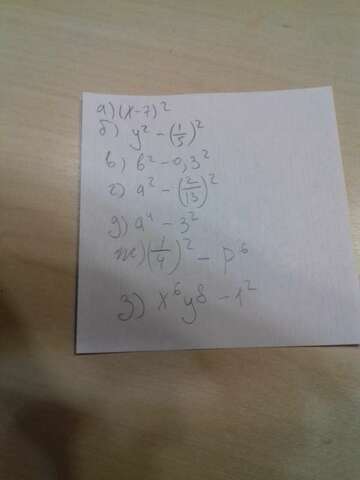 а) (x-7)²
б) y² - (1/5)²
в) b² - 0,3²
г) a² - (2/13)²
д) a⁴ - 3²
ж) (1/4)² - p⁶
з) x⁶y⁸ - 1²